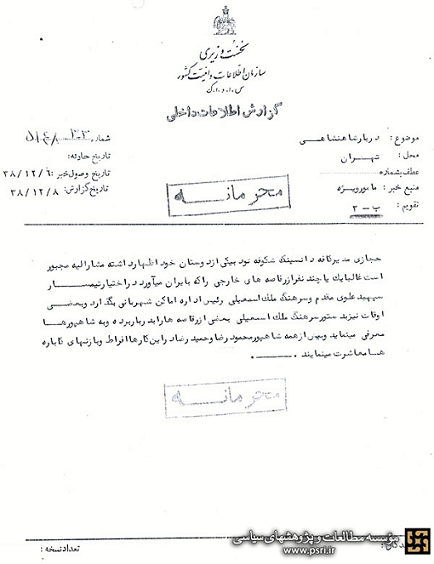 نخست وزیری
سازمان اطلاعات و امنیت کشور
س.ا.و.ا.ک
گزارش اطلاعات داخلی
موضوع : دربار شاهنشاهی
شماره
محل : تهران
تاریخ حادثه:
عطف بشماره
تاریخ وصول خبر : ۳۸/۱۲/۶
منبع خبر : مامور ویژه
تاریخ گزارش : ۳۸/۱۲/۸
تقویم : ب - ۲
محرمانه
حجازی مدیر کافه دانسینگ شکوفه نو به یکی از دوستان خود اظهار داشته مشارالیه مجبور
است غالبا یك یا چند نفر از رقاصه های خارجی را که بایران میآورد در اختیار تیمسار
سپهبد علوی مقدم و سرهنگ ملك اسمعیلی رئیس اداره اماکن شهربانی بگذارد و بعضی
اوقات نیز به دستور سرهنگ ملك اسمعیلی بعضی از رقاصه ها را به دربار برده و به شاهپورها
معرفی مینماید و بیش از همه شاهپور محمود رضا و حمید رضا در این کارها افراط و با زنهای کاباره
ها معاشرت مینمایند .
محرمانه
تعداد نسخه :
مؤسسه مطالعات و پژوهشهای سیاسی
www.psri.ir